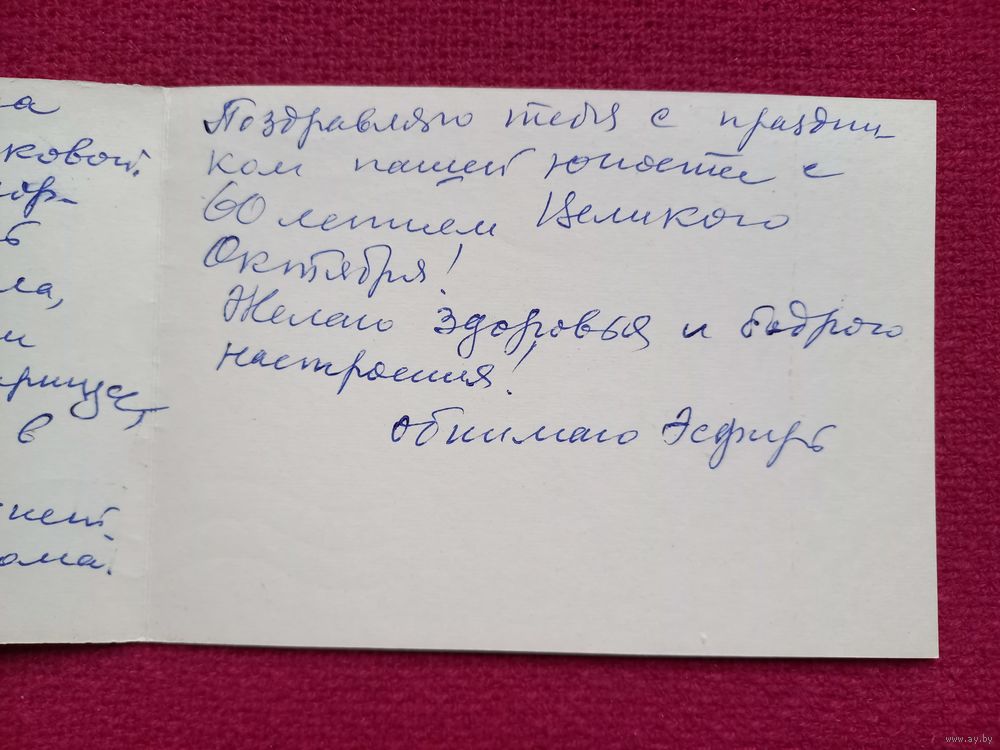 а
ковой.
ла,
и
в
ома.
Поздравляю тебя с праздни-
ком нашей юности с
60 летием Великого
Октября!
Желаю здоровья и бодрого
настроения!
Обнимаю Эсфирь
www.ay.by